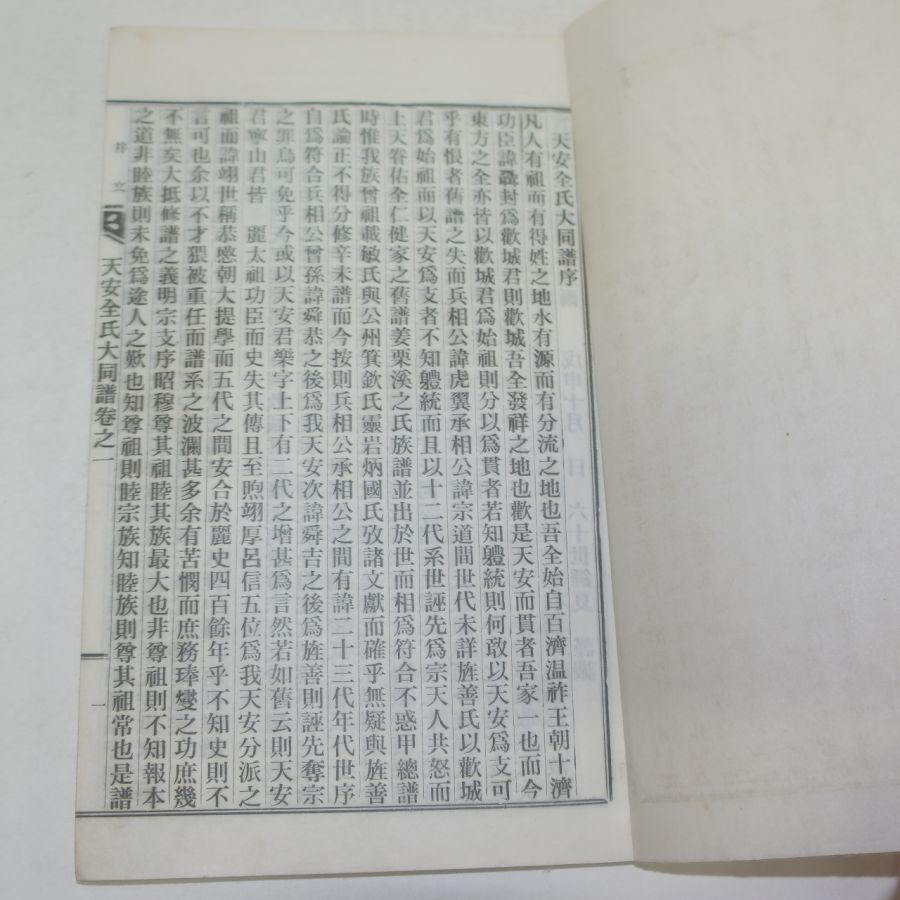 天安全氏大同譜序
凡人有祖而有得姓之地水有源而有分流之地也吾全始自百濟温祚王朝十濟
功臣諱聶封爲歡城君則歡城吾全發祥之地也歡是天安而貫者吾家一也而今
東方之全亦皆以歡城君爲始祖則分以爲貫者若知軆統則何敢以天安爲支可
乎有恨者舊譜之失而兵相公諱虎翼承相公諱宗道間世代未詳旌善氏以歡城
君爲始祖而以天安爲支者不知軆統而且以十二代系世誣先爲宗天人共怒而
上天眷佑全仁健家之舊譜姜栗溪之氏族譜並出於世而相爲符合不惑甲總譜
時惟我族曾祖載敏氏與公州箕欽氏靈岩炳國氏攷諸文獻而確乎無疑與旌善
氏論正不得分修辛未譜而今按則兵相公承相公之間有諱二十三代年代世序
自爲符合兵相公曾孫諱舜恭之後爲我天安次諱舜吉之後爲旌善則誣先奪宗
之罪烏可免乎今或以天安君樂字上下有二代之增甚爲言然若如舊云則天安
君寧山君皆 麗太祖功臣而史失其傳且至煦翊厚呂信五位爲我天安分派之
祖而諱翊世稱恭愍朝大提學而五代之間安合於麗史四百餘年乎不知史則不
言可也余以不才猥被重任而譜系之波瀾甚多余有苦憫而庶務琫燮之功庶幾
不無矣大抵修譜之義明宗支序昭穆尊其祖睦其族最大也非尊祖則不知報本
之道非睦族則未免爲途人之歎也知尊祖則睦宗族知睦族則尊其祖常也是譜
序文
天安全氏大同譜卷之一
一